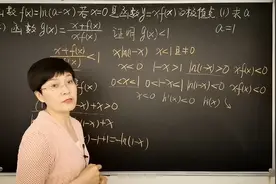 数 f(x)=ln(a-x) 若 x=0 是函数 y=xf(x) 的极值点 (1) 求 a
函数 g(x)= x+f(x) / xf(x) 证明 g(x)<1 a=1
x+f(x) / xf(x) <1
xln(1-x) x<1 且 x≠0
x<0 1-x>1 ln(1-x)>0 xf(x)<0
0<x<1 0<1-x<1 ln(1-x)<0 xf(x)<0
x<0 h'(x)<0 h(x)
+x>0
-x)+x
-1+1=-ln(1-x)